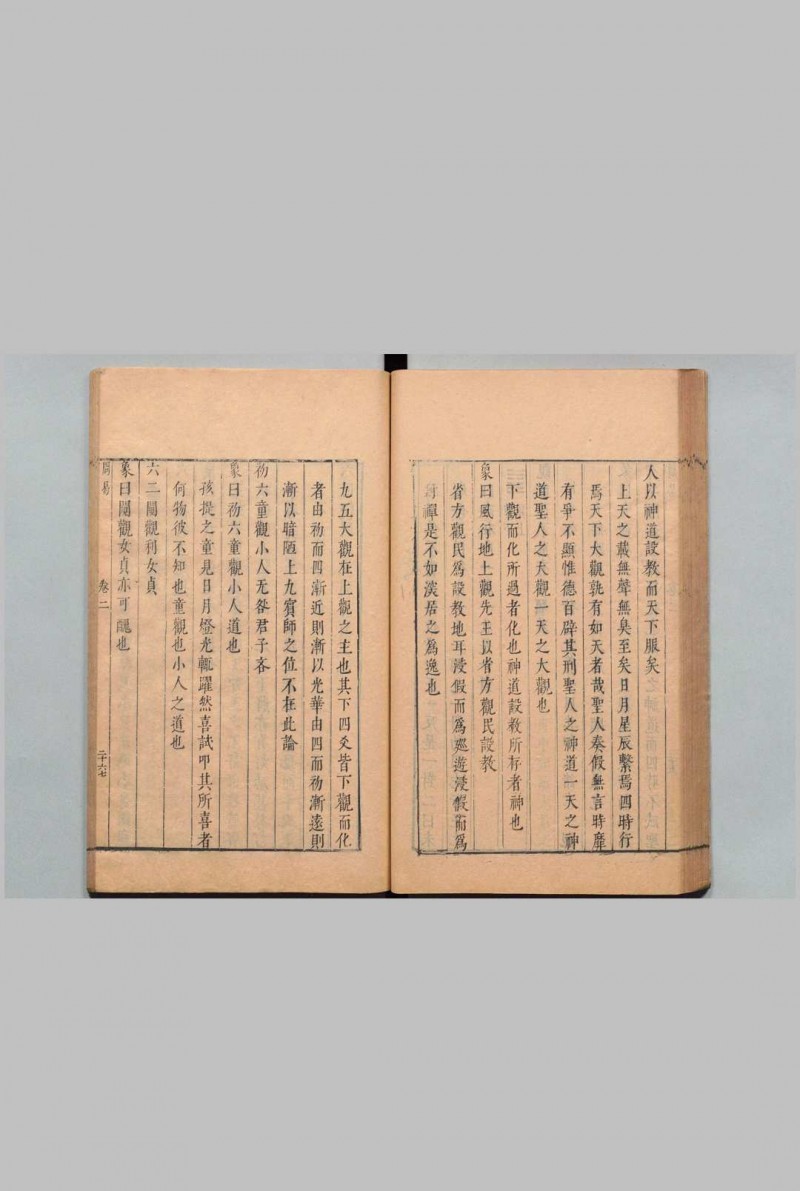 人以神道設教而天下服矣
上天之載無聲無臭至矣日月星辰繫焉四時行
焉天下大觀孰有如天者哉聖人奏假無言時靡
有爭不顯惟德百辟其刑聖人之神道一天之神
道聖人之大觀一天之大觀也
下觀而化所過者化也神道設教所存者神也
象曰風行地上觀先王以省方觀民設教
省方觀民為設教地耳浸假而為廵遊浸假而為
封禪是不如淡居之為逸也
九五大觀在上觀之主也其下四爻皆下觀而化
者由初而四漸近則漸以光華由四而初漸遠則
漸以暗陋上九賓師之位不在此論
初六童觀小人无咎君子吝
象曰初六童觀小人道也
孩提之童見日月燈光輒躍然喜試叩其所喜者
何物彼不知也童觀也小人之道也
六二闚觀利女貞
象曰闚觀女貞亦可醜也
周易 卷二 二十六七